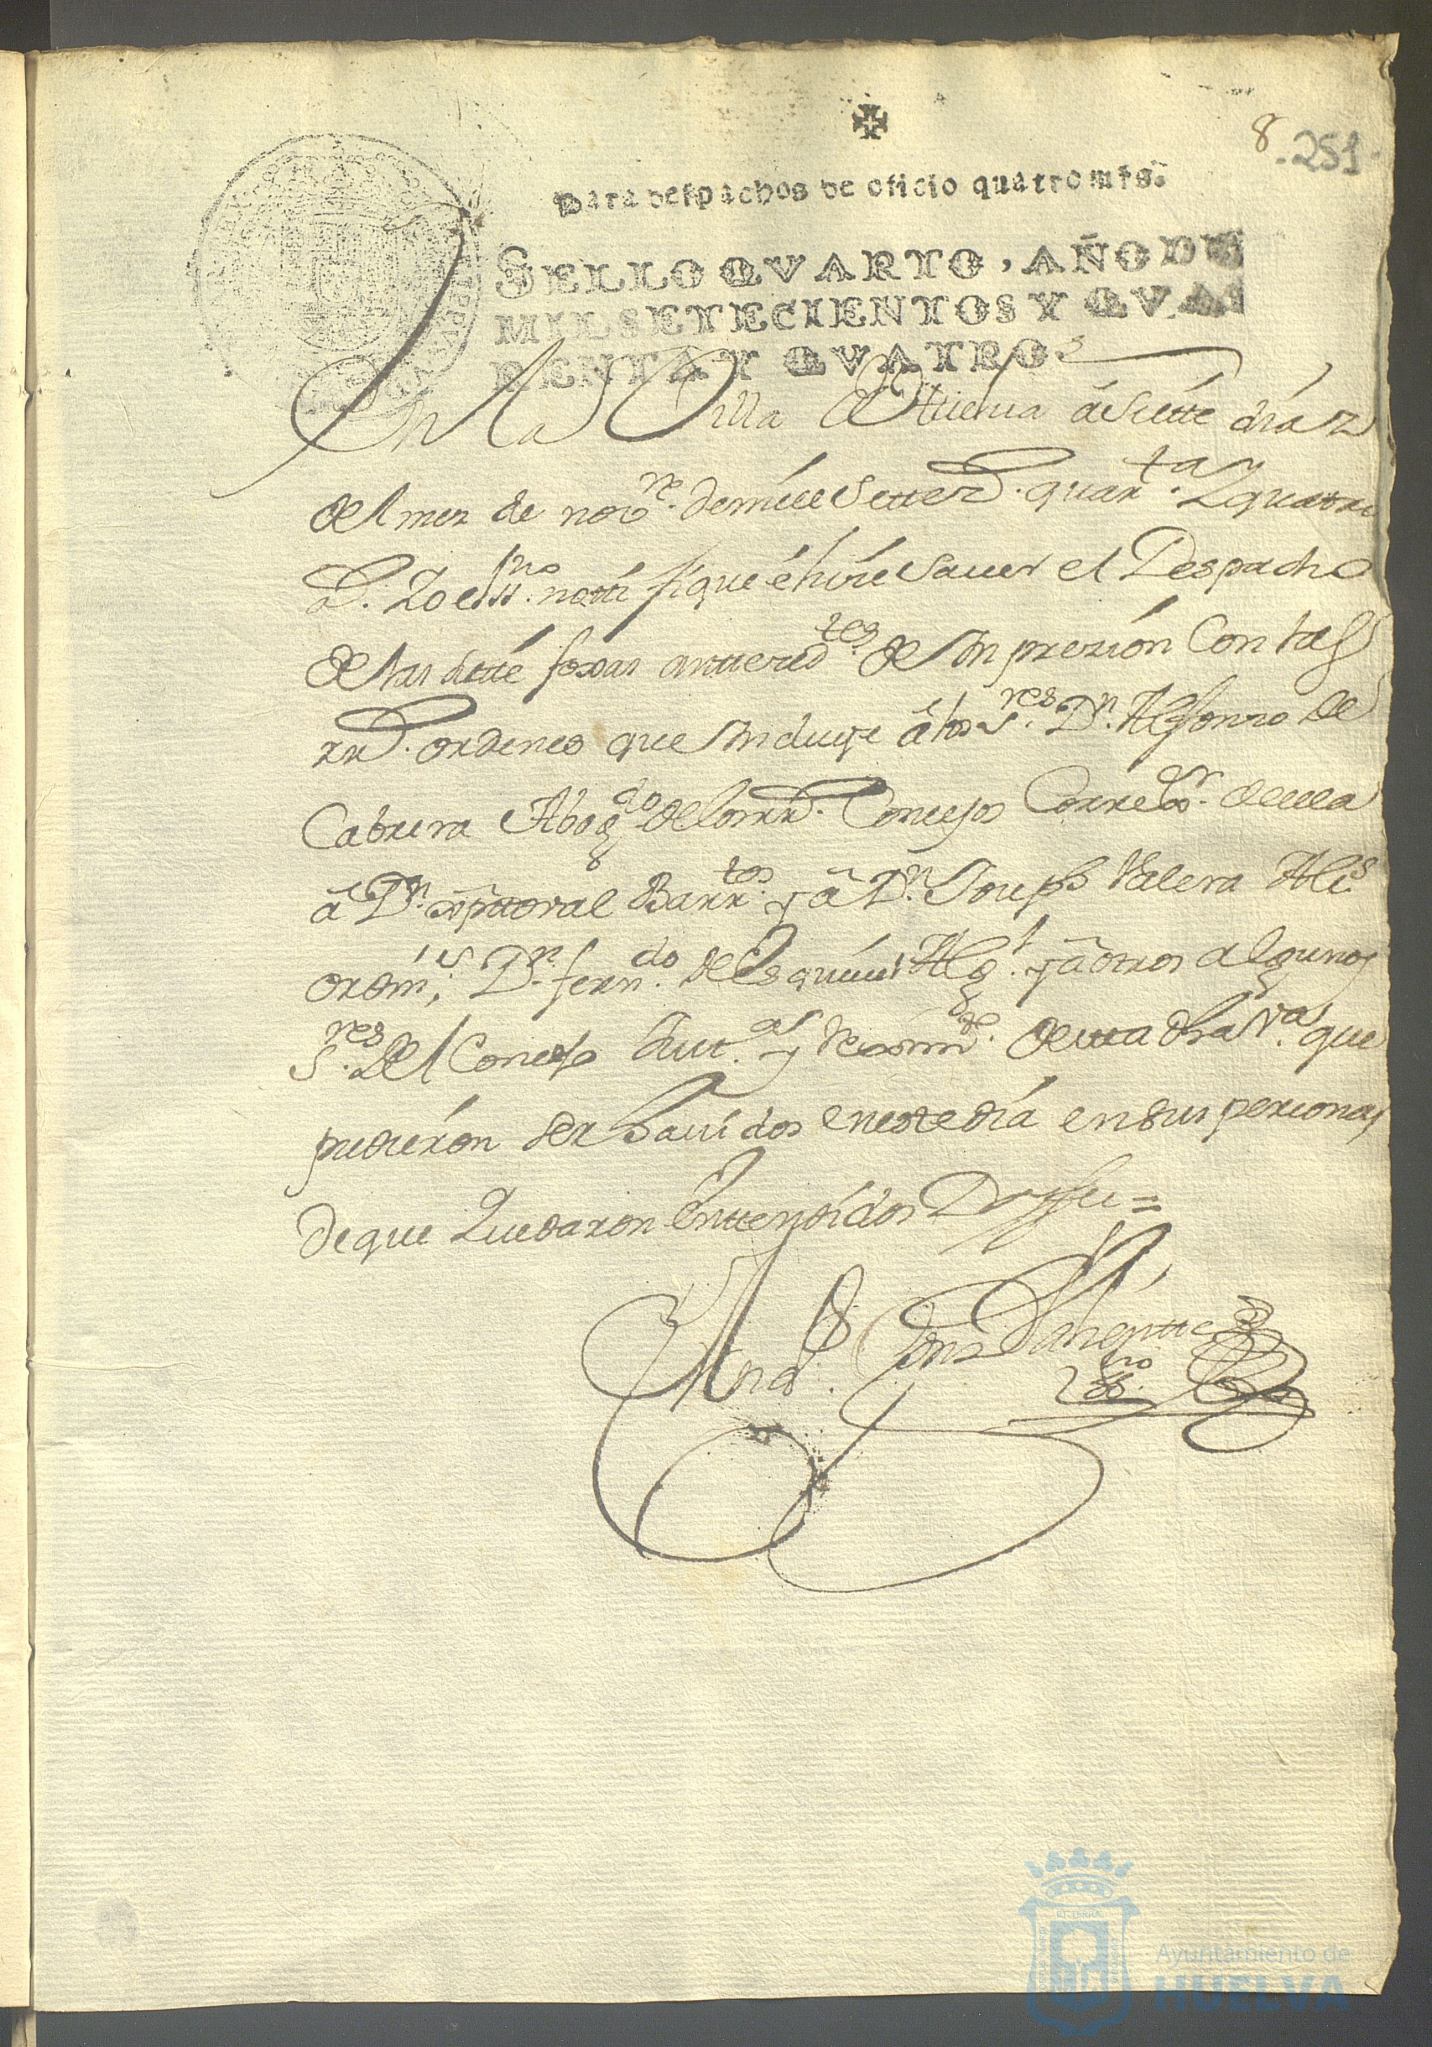 8
251
Para despachos de oficio quatro mrs.
SELLO QVARTO, AÑO DE
MIL SETECIENTOS Y QVA
RENTA Y QVATRO.
En la Villa de Huelva á siette dias
del mes de nove. de mill settezs. quarta. y quatro
as. Yo el ssno. nottifiqué é hize saver el Despacho
de las ziette foxas antteredtes. de Inprezión con las
rrs. ordenes que Incluye á los Sres. Dn. Alfonso de
Cabrera Abogdo. de los rrs. Concejos Corregor. de ella
á Dn. xpttoval Barrtos. y á Dn. Joseph Valera Alcs.
ordins. Dn. Ferndo. de Esquivel Algl. y á otros algunos
Sres. del Concejo Justas. y Reximte. de esta dha Va. que
pudierón ser havidos en este día en sus perzonas
de que Quedaron Enttendidos Doy fee =
And. Gonz Valientte
essno.
Ayuntamiento de
HUELVA